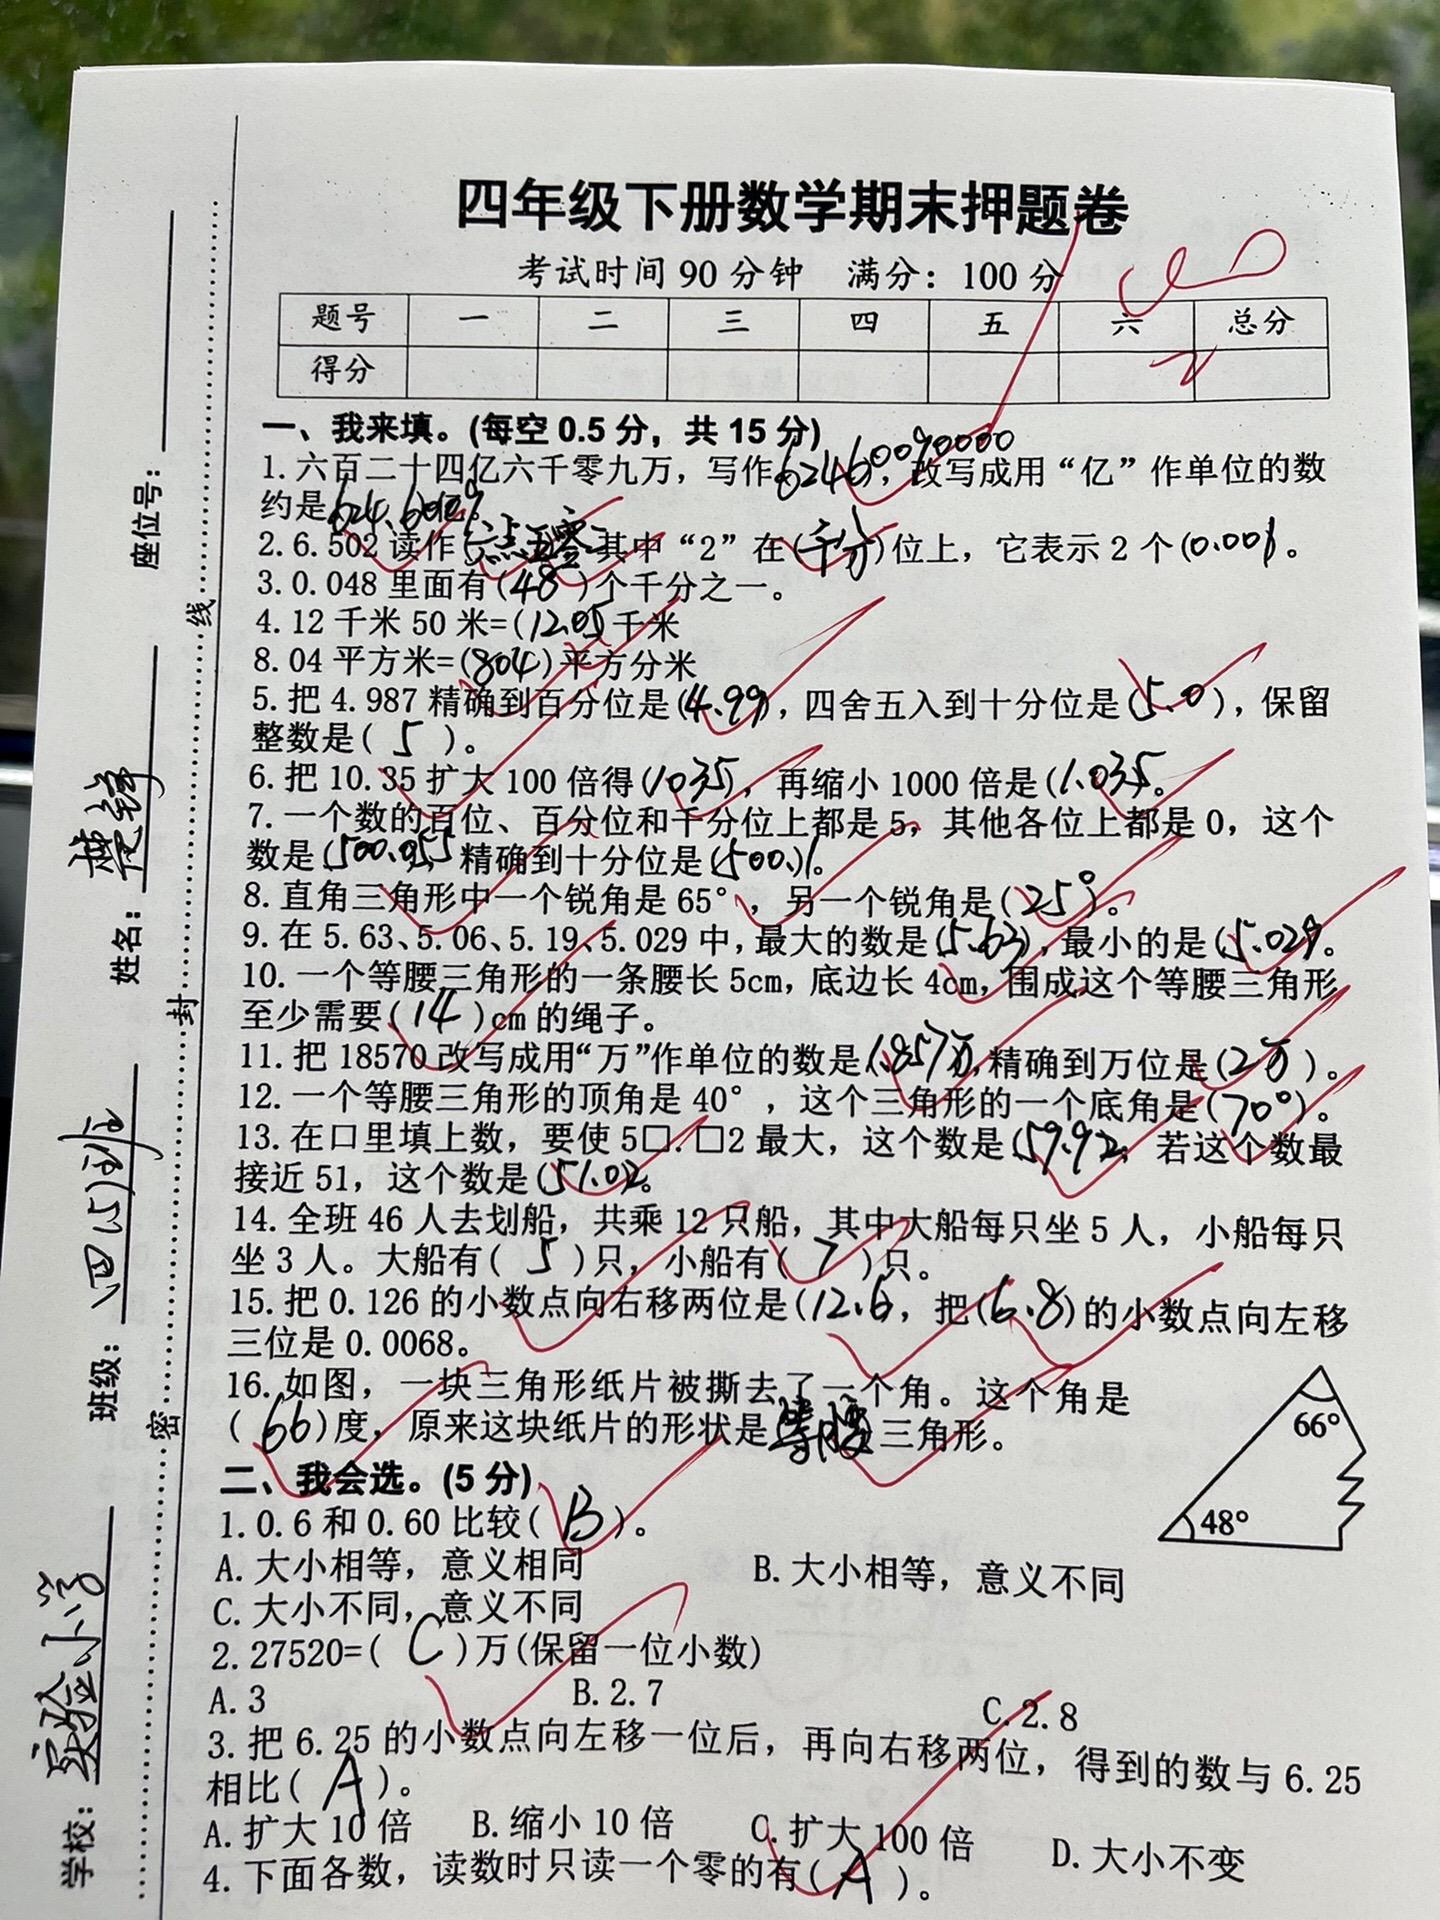 四年级下册数学期末押题卷
考试时间 90 分钟 满分：100 分
题号 一 二 三 四 五 六 总分
得分
一、我来填。(每空 0.5 分，共 15 分)
1.六百二十四亿六千零九万，写作(62460090000)，改写成用“亿”作单位的数
约是(624.6009亿)。
2.6.502 读作(六点五零二)其中“2”在(千分)位上，它表示 2 个(0.001)。
3.0.048 里面有(48)个千分之一。
4.12 千米 50 米=(12.05)千米
8.04 平方米=(804)平方分米
5.把 4.987 精确到百分位是(4.99)，四舍五入到十分位是(5.0)，保留
整数是(5)。
6.把 10.35 扩大 100 倍得(1035)，再缩小 1000 倍是(1.035。
7.一个数的百位、百分位和千分位上都是 5，其他各位上都是 0，这个
数是(500.055，精确到十分位是(500.1)。
8.直角三角形中一个锐角是 65°，另一个锐角是(25°)。
9.在 5.63、5.06、5.19、5.029 中，最大的数是(5.63)，最小的是(5.029。
10.一个等腰三角形的一条腰长 5cm，底边长 4cm，围成这个等腰三角形
至少需要(14)cm 的绳子。
11.把 18570 改写成用“万”作单位的数是(1.857万)，精确到万位是(2万)。
12.一个等腰三角形的顶角是 40°，这个三角形的一个底角是(70°)。
13.在口里填上数，要使 5□.□2 最大，这个数是(59.92，若这个数最
接近 51，这个数是(51.02)。
14.全班 46 人去划船，共乘 12 只船，其中大船每只坐 5 人，小船每只
坐 3 人。大船有(5)只，小船有(7)只。
15.把 0.126 的小数点向右移两位是(12.6，把(6.8)的小数点向左移
三位是 0.0068。
16.如图，一块三角形纸片被撕去了一个角。这个角是
(66)度，原来这块纸片的形状是(等腰)三角形。
66°
48°
二、我会选。(5 分)
1.0.6 和 0.60 比较(B)。
A.大小相等，意义相同 B.大小相等，意义不同
C.大小不同，意义不同
2.27520=(C)万(保留一位小数)
A.3 B.2.7 C.2.8
3.把 6.25 的小数点向左移一位后，再向右移两位，得到的数与 6.25
相比(A)。
A.扩大 10 倍 B.缩小 10 倍 C.扩大 100 倍 D.大小不变
4.下面各数，读数时只读一个零的有(A)。
学校：实验小学 班级：四(5)班 姓名： 座位号：
密 封 线